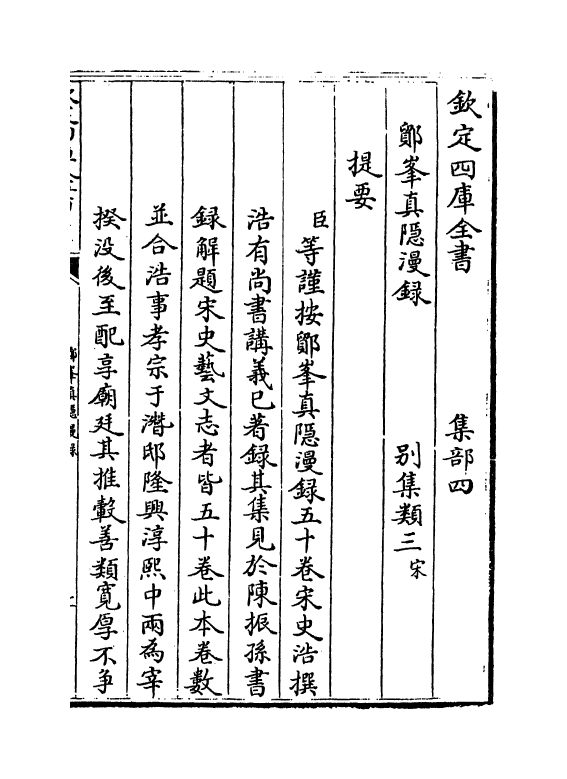 欽定四庫全書　集部四
鄮峯真隱漫録　别集類三宋
提要
臣等謹按鄮峯真隱漫録五十卷宋史浩撰
浩有尚書講義已著録其集見於陳振孫書
録解題宋史藝文志者皆五十卷此本卷數
並合浩事孝宗于濳邸隆興淳熙中兩為宰
揆没後至配享廟廷其推轂善類寛厚不争
鄮峯真隱漫録